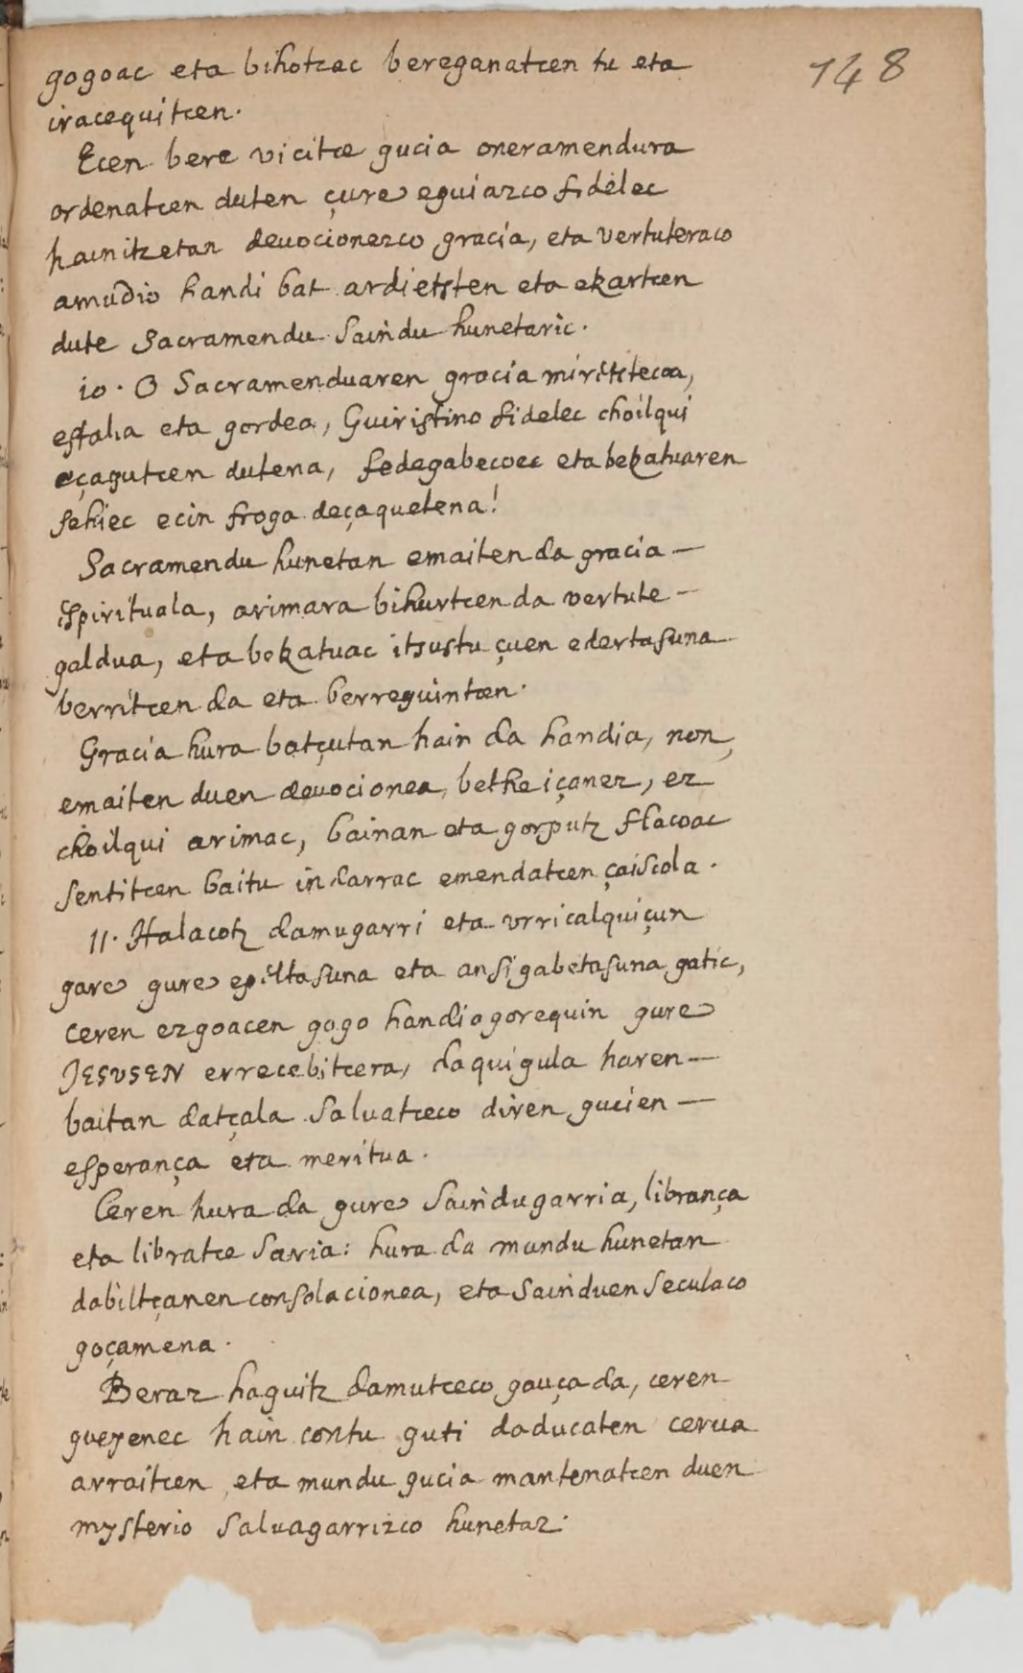 148
gogoac eta bihotcac bereganatcen tu eta
iracequitcen.
Ecen bere vicitce gucia oneramendura
ordenatcen duten çure eguiazco fidelec
hainitzetan deuocionezco gracia, eta vertuteraco
amudio handi bat ardietsten eta ekartcen
dute Sacramendu Saindu hunetaric.
10. O Sacramenduaren gracia miritstecoa,
estalia eta gordea, Guiristino fidelec choilqui
eçagutcen dutena, fedegabecoec eta bekatuaren
sehiec ecin froga deçaquetena!
Sacramendu hunetan emaiten da gracia
ispirituala, arimara bihurtcen da vertute
galdua, eta bekatuac itsustu çuen edertasuna
berritcen da eta berreguinten.
Gracia hura batçutan hain da handia, non,
emaiten duen deuocionea, betheiçanez, ez
choilqui arimac, bainan eta gorputz flacoac
sentitcen baitu indarrac emendatcen çaiscola.
11. Halacotz damugarri eta vrricalquiçun
gare gure epeltasuna eta ansigabetasuna gatic,
ceren ezgoacen gogo handiagorequin gure
JESVSEN errecebitcera, daquigula haren
baitan datçala saluatceco diren gucien
esperança eta meritua.
Ceren hura da gure Saindugarria, librança
eta libratce saria: hura da mundu hunetan
dabiltçanen consolacionea, eta Sainduen seculaco
goçamena.
Beraz haguitz damutceco gauça da, ceren
gueyenec hain contu guti daducaten cerua
arraitcen eta mundu gucia mantenatcen duen
mysterio saluagarrizco hunetaz.